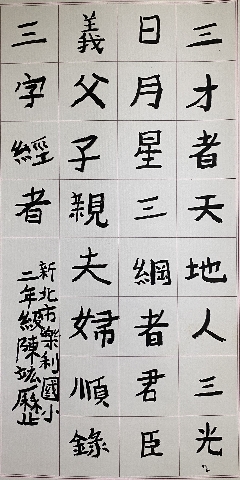 三才者天地人三光
日月星三綱者君臣
義父子親夫婦順錄
三字經者
新北市樂利國小
二年級陳竑